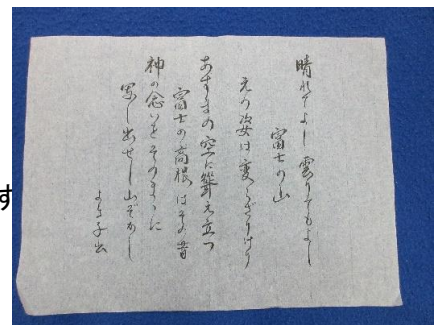 晴れてよし 雲りてもよし
富士の山
元の姿は変らざりけり
あずまの空に聳え立つ
富士の高根はその昔
神の念いをそのまゝに
写し出せし山ぞかし
す